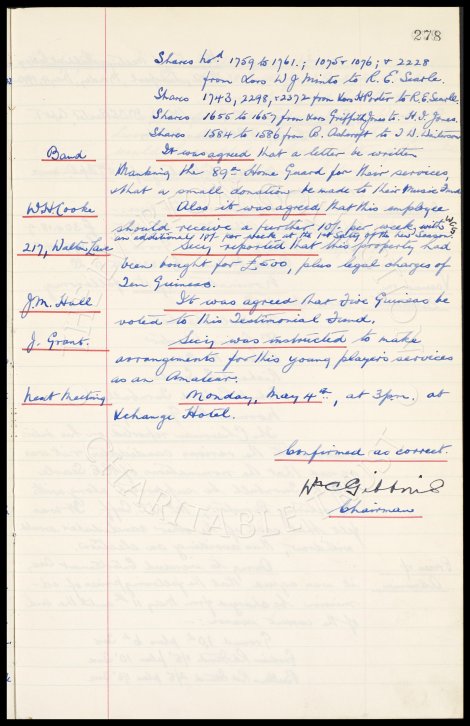 278
Shares nos. 1759 to 1761.; 1075 & 1076; & 2228
from Exors W J to R. E. Searle.
Shares 1743, 2298, & 2372 from Exors H Porter to R. E. Searle.
Shares 1655 to 1657 from Exors Griffith Jones to H. I. Jones.
Shares 1584 to 1586 from A. Ashcroft to
Band It was agreed that a letter be written
thanking the 89th Home Guard for their services,
& that a small donation be made to their Music Fund
W. H. Cooke Also it was agreed that this employee
should receive a further 10/- per week, with
an additional 10/- per week at the of the new Season
217, Walton Lane Secy reported that this property had
been bought for £500, plus legal charges of
Ten Guineas.
J. M. Hall It was agreed that Five Guineas be
voted to this Testimonial Fund.
J. Grant. Secy was instructed to make
arrangements for this young player's services
as an Amateur.
Next Meeting Monday, May 4th, at 3 p.m. at
Exchange Hotel.
Confirmed as correct.
Wm C Gibbins
Chairman
CHARITABLE